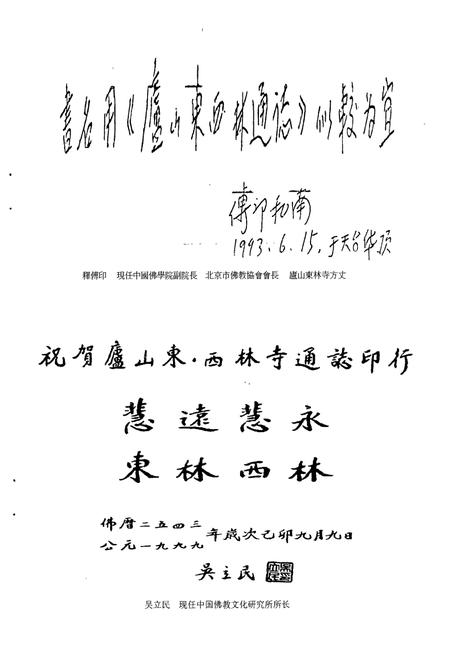 書名用《廬山東西林通誌》似較为宜
傅印和南
1993.6.15.于天台华顶
釋傅印 現任中國佛學院副院長 北京市佛教協會會長 廬山東林寺方丈
祝賀廬山東·西林寺通誌印行
慧遠慧永
東林西林
佛曆二五四三
公元一九九九 年歲次己卯九月九日
吳立民
吴立民 现任中国佛教文化研究所所长